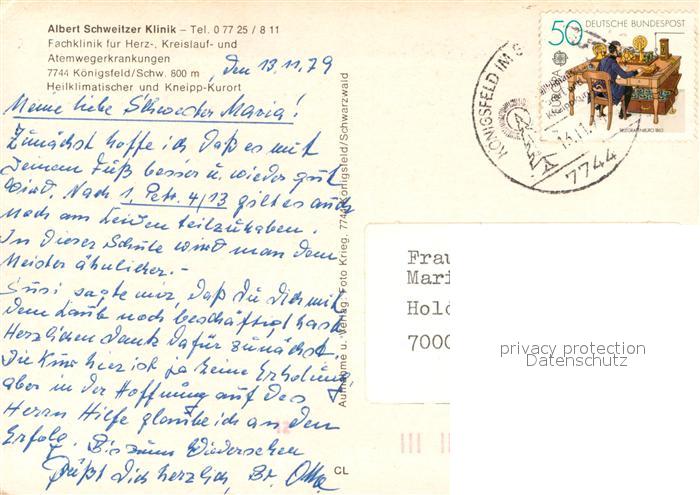 Albert Schweitzer Klinik – Tel. 0 77 25 / 8 11
Fachklinik für Herz-, Kreislauf- und
Atemwegerkrankungen
7744 Königsfeld/Schw. 800 m
Heilklimatischer und Kneipp-Kurort
den 13.11.79
Meine liebe Schwester Maria!
Zunächst hoffe ich daß es mit
Deinem Fuß besser u. wieder gut
wird. Nach 1. Petr. 4/13 gilt es auch
noch am Leiden teilzuhaben.
In dieser Schule wird man dem
Meister ähnlicher.-
Susi sagte mir, daß Du Dich mit
dem Laub noch beschäftigt hast
Herzlichen Dank dafür zunächst.
Die Kur hier ist ja keine Erholung,
aber in der Hoffnung auf des
Herrn Hilfe glaube ich an den
Erfolg. Bis zum Wiedersehen
Grüßt Dich herzlich, Br. Otto
CL
Aufnahme u. Verlag: Foto Krieg, 7744 Königsfeld/Schwarzwald
KÖNIGSFELD IM S
13.11.
7744
50 DEUTSCHE BUNDESPOST
EUROPA
CEPT
Frau
Mari
Hold
7000
privacy protection
Datenschutz